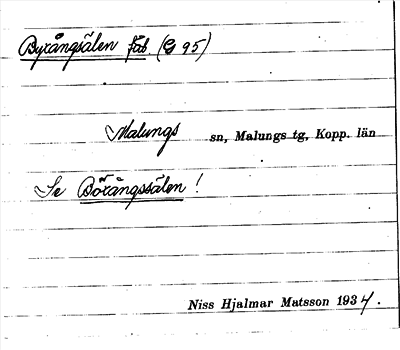 Byxångsälen fäb. (G 95)
Malungs sn, Malungs tg, Kopp. län
Se Böxångssälen!
Niss Hjalmar Matsson 1934.